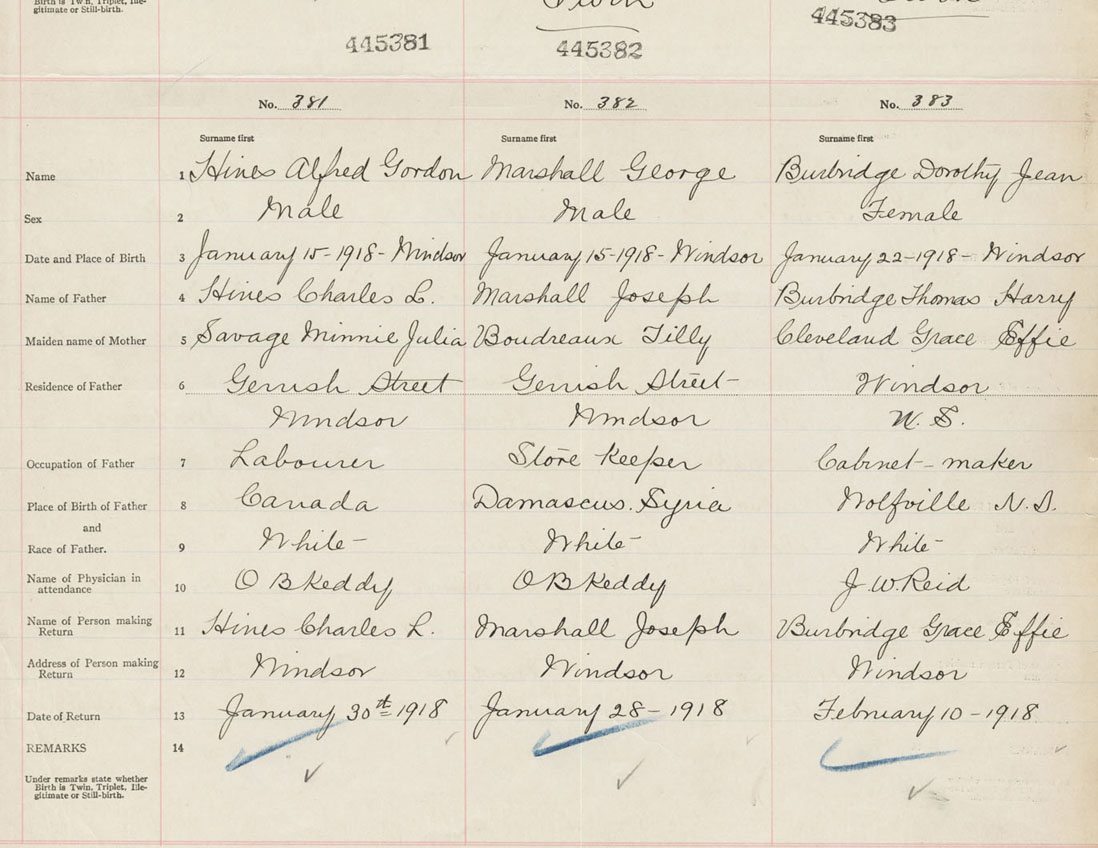 Birth is Twin, Triplet, Ille-
gitimate or Still-birth.
Twin
445381 445382 445383
No. 381 No. 382 No. 383
Surname first Surname first Surname first
Name 1 Hines Alfred Gordon Marshall George Burbridge Dorothy Jean
Sex 2 Male Male Female
Date and Place of Birth 3 January 15-1918- Windsor January 15-1918- Windsor January 22-1918- Windsor
Name of Father 4 Hines Charles L. Marshall Joseph Burbridge Thomas Harry
Maiden name of Mother 5 Savage Minnie Julia Boudreaux Tilly Cleveland Grace Effie
Residence of Father 6 Gerrish Street Gerrish Street Windsor
Windsor Windsor N. S.
Occupation of Father 7 Labourer Store Keeper Cabinet-maker
Place of Birth of Father 8 Canada Damascus. Syria Wolfville N.S.
and
Race of Father. 9 White White White
Name of Physician in
attendance 10 O B Keddy O B Keddy J. W. Reid
Name of Person making
Return 11 Hines Charles L. Marshall Joseph Burbridge Grace Effie
Address of Person making
Return 12 Windsor Windsor Windsor
Date of Return 13 January 30th 1918 January 28-1918 February 10-1918
REMARKS 14
Under remarks state whether
Birth is Twin, Triplet, Ille-
gitimate or Still-birth.